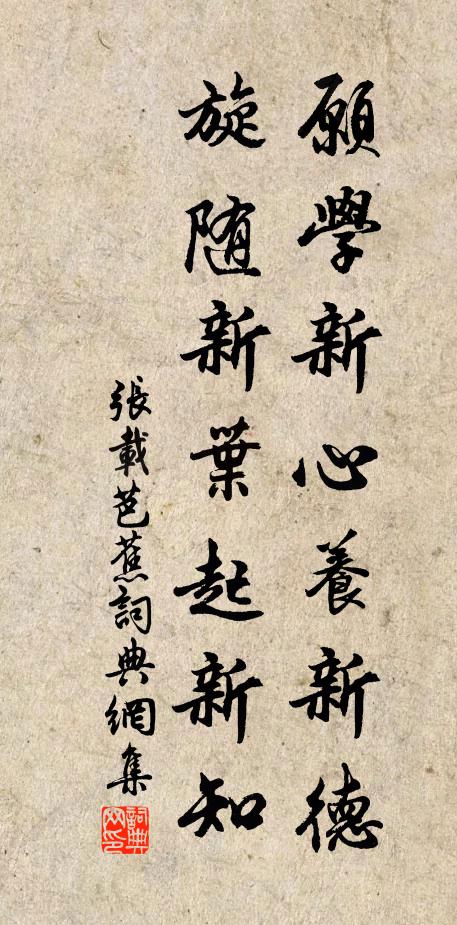 願學新心養新德
旋随新葉起新知
張載芭蕉詞典網集
詞典网印